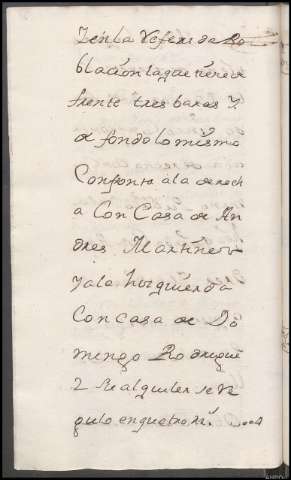 Zen la Referida Po
blacion la que tiene de
frente tres baras Y
de fondo lo mismo
Confronta a la derech
a Con Casa de An
dres Martinez
y a la hizquierda
Con casa de Do
mingo Rodrigue
z Su alquiler se R
gulo en quatro Rs.